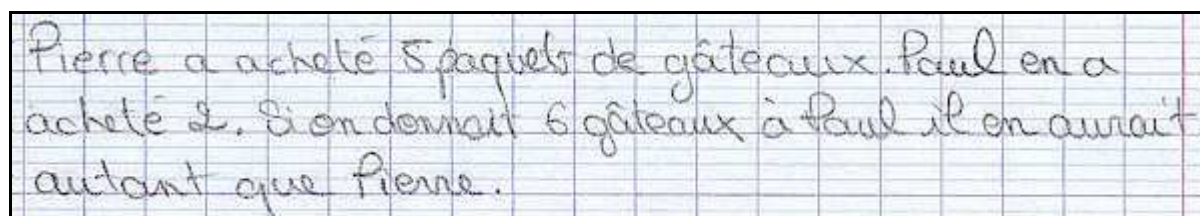 Pierre a acheté 5 paquets de gâteaux. Paul en a
acheté 2. Si on donnait 6 gâteaux à Paul il en aurait
autant que Pierre.